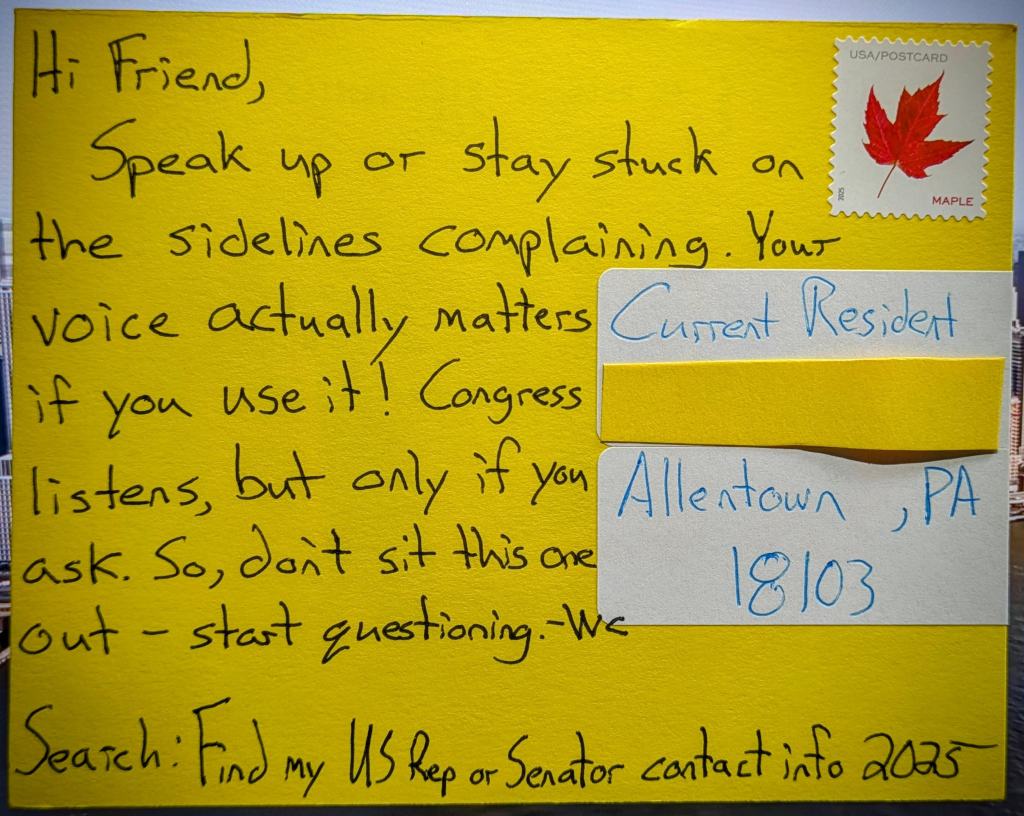 Hi Friend,
USA/POSTCARD
2025
MAPLE
Speak up or stay stuck on
the sidelines complaining. Your
voice actually matters
if you use it! Congress
listens, but only if you
ask. So, don't sit this one
out – start questioning. -Wc
Current Resident
Allentown, PA
18103
Search: Find my US Rep or Senator contact info 2025